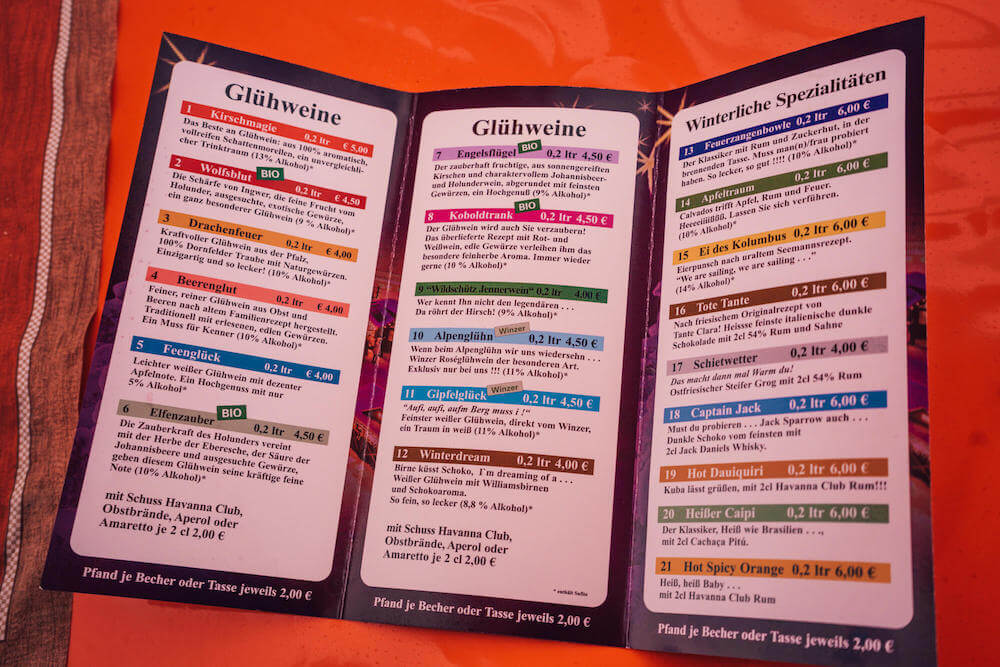 Glühweine
1 Kirschmagie 0,2 ltr € 5,00
Das Beste an Glühwein: aus 100% aromatisch,
vollreifen Schattenmorellen, ein unvergleichli-
cher Trinktraum (13% Alkohol)*
BIO
2 Wolfsblut 0,2 ltr € 4,50
Die Schärfe von Ingwer, die feine Frucht vom
Holunder, ausgesuchte, exotische Gewürze,
ein ganz besonderer Glühwein (9 % Alkohol)*
3 Drachenfeuer 0,2 ltr € 4,00
Kraftvoller Glühwein aus der Pfalz,
100% Dornfelder Traube mit Naturgewürzen.
Einzigartig und so lecker! (10% Alkohol)*
4 Beerenglut 0,2 ltr € 4,00
Feiner, reiner Glühwein aus Obst und
Beeren nach altem Familienrezept hergestellt.
Traditionell mit erlesenen, edlen Gewürzen.
Ein Muss für Kenner (10% Alkohol)*
5 Feenglück 0,2 ltr € 4,00
Leichter weißer Glühwein mit dezenter
Apfelnote. Ein Hochgenuss mit nur
5% Alkohol*
BIO
6 Elfenzauber 0,2 ltr 4,50 €
Die Zauberkraft des Holunders vereint
mit der Herbe der Eberesche, der Säure der
Johannisbeere und ausgesuchte Gewürze,
geben diesem Glühwein seine kräftige feine
Note (10% Alkohol)*
mit Schuss Havanna Club,
Obstbrände, Aperol oder
Amaretto je 2 cl 2,00 €
Pfand je Becher oder Tasse jeweils 2,00 €
Glühweine
BIO
7 Engelsflügel 0,2 ltr 4,50 €
Der zauberhaft fruchtige, aus sonnengereiften
Kirschen und charaktervollem Johannisbeer-
und Holunderwein, abgerundet mit feinsten
Gewürzen, ein Hochgenuß (9% Alkohol)*
BIO
8 Koboldtrank 0,2 ltr 4,50 €
Der Glühwein wird auch Sie verzaubern!
Das überlieferte Rezept mit Rot- und
Weißwein, edle Gewürze verleihen ihm das
besondere feinherbe Aroma. Immer wieder
gerne (10 % Alkohol)*
9 “Wildschütz Jennerwein“ 0,2 ltr 4,00 €
Wer kennt Ihn nicht den legendären . . .
Da röhrt der Hirsch! (9% Alkohol)*
Winzer
10 Alpenglühn 0,2 ltr 4,50 €
Wenn beim Alpenglühn wir uns wiedersehn . . .
Winzer Roséglühwein der besonderen Art.
Exklusiv nur bei uns !!! (11% Alkohol)*
Winzer
11 Gipfelglück 0,2 ltr 4,50 €
“Aufi, aufi, aufm Berg muss i !“
Feinster weißer Glühwein, direkt vom Winzer,
ein Traum in weiß (11% Alkohol)*
12 Winterdream 0,2 ltr 4,00 €
Birne küsst Schoko, I´m dreaming of a . . .
Weißer Glühwein mit Williamsbirnen
und Schokoaroma.
So fein, so lecker (8,8 % Alkohol)*
mit Schuss Havanna Club,
Obstbrände, Aperol oder
Amaretto je 2 cl 2,00 €
* enthält Sulfite
Pfand je Becher oder Tasse jeweils 2,00 €
Winterliche Spezialitäten
13 Feuerzangenbowle 0,2 ltr 6,00 €
Der Klassiker mit Rum und Zuckerhut, in der
brennenden Tasse. Muss man(n)/frau probiert
haben. So lecker, so gut !!!! (10% Alkohol)*
14 Apfeltraum 0,2 ltr 6,00 €
Calvados trifft Apfel, Rum und Feuer.
Heeeeiiiißßß. Lassen Sie sich verführen.
(10% Alkohol)*
15 Ei des Kolumbus 0,2 ltr 6,00 €
Eierpunsch nach uraltem Seemannsrezept.
“We are sailing, we are sailing . . .“
(14% Alkohol)*
16 Tote Tante 0,2 ltr 6,00 €
Nach friesischem Originalrezept von
Tante Clara! Heissse feinste italienische dunkle
Schokolade mit 2cl 54% Rum und Sahne
17 Schietwetter 0,2 ltr 4,00 €
Das macht dann mal Warm du!
Ostfriesischer Steifer Grog mit 2cl 54% Rum
18 Captain Jack 0,2 ltr 6,00 €
Must du probieren . . . Jack Sparrow auch . . .
Dunkle Schoko vom feinsten mit
2cl Jack Daniels Whisky.
19 Hot Dauiquiri 0,2 ltr 6,00 €
Kuba lässt grüßen, mit 2cl Havanna Club Rum!!!
20 Heißer Caipi 0,2 ltr 6,00 €
Der Klassiker, Heiß wie Brasilien . . .,
mit 2cl Cachaça Pitú.
21 Hot Spicy Orange 0,2 ltr 6,00 €
Heiß, heiß Baby . . .
mit 2cl Havanna Club Rum
Pfand je Becher oder Tasse jeweils 2,00 €